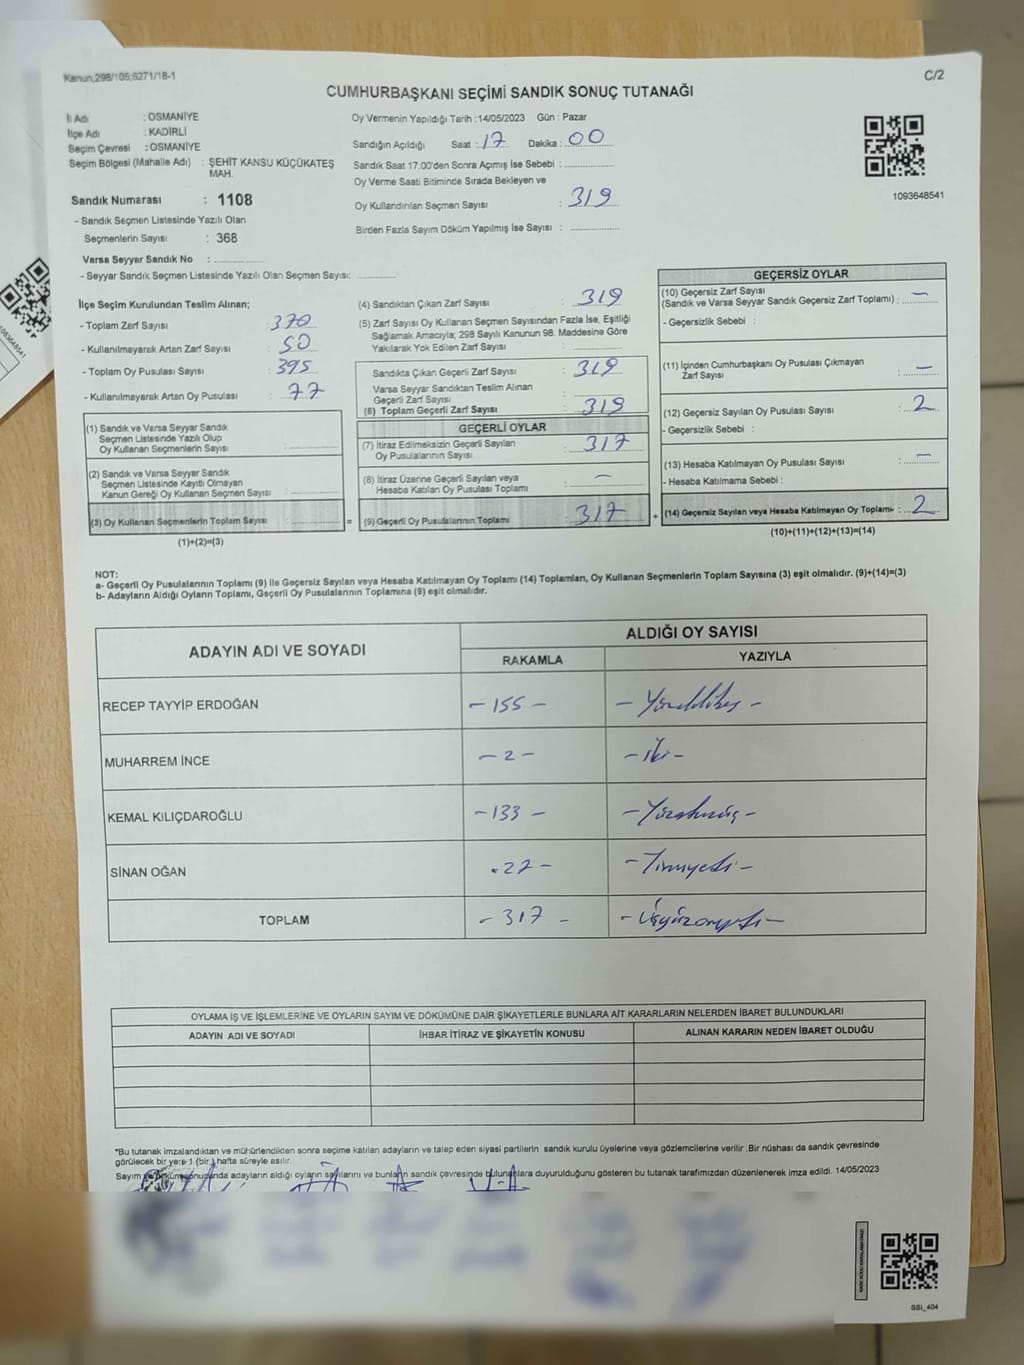 Kanun,298/105;6271/18-1
C/2
CUMHURBAŞKANI SEÇİMİ SANDIK SONUÇ TUTANAĞI
İl Adı : OSMANİYE
İlçe Adı : KADİRLİ
Seçim Çevresi : OSMANİYE
Seçim Bölgesi (Mahalle Adı) : ŞEHİT KANSU KÜÇÜKATEŞ
MAH.
Sandık Numarası : 1108
- Sandık Seçmen Listesinde Yazılı Olan
Seçmenlerin Sayısı : 368
Varsa Seyyar Sandık No :
- Seyyar Sandık Seçmen Listesinde Yazılı Olan Seçmen Sayısı:
Oy Vermenin Yapıldığı Tarih :14/05/2023 Gün : Pazar
Sandığın Açıldığı Saat : 17 Dakika : 00
Sandık Saat 17:00'den Sonra Açımış İse Sebebi :
Oy Verme Saati Bitiminde Sırada Bekleyen ve
Oy Kullandırılan Seçmen Sayısı : 319
Birden Fazla Sayım Döküm Yapılmış İse Sayısı :
1093648541
İlçe Seçim Kurulundan Teslim Alınan;
- Toplam Zarf Sayısı : 370
- Kullanılmayarak Artan Zarf Sayısı : 50
- Toplam Oy Pusulası Sayısı : 395
- Kullanılmayarak Artan Oy Pusulası : 77
(1) Sandık ve Varsa Seyyar Sandık
Seçmen Listesinde Yazılı Olup
Oy Kullanan Seçmenlerin Sayısı :
(2) Sandık ve Varsa Seyyar Sandık
Seçmen Listesinde Kayıtlı Olmayan
Kanun Gereği Oy Kullanan Seçmen Sayısı :
(3) Oy Kullanan Seçmenlerin Toplam Sayısı :
(1)+(2)=(3)
(4) Sandıktan Çıkan Zarf Sayısı : 319
(5) Zarf Sayısı Oy Kullanan Seçmen Sayısından Fazla İse, Eşitliği
Sağlamak Amacıyla; 298 Sayılı Kanunun 98. Maddesine Göre
Yakılarak Yok Edilen Zarf Sayısı :
Sandıkta Çıkan Geçerli Zarf Sayısı : 319
Varsa Seyyar Sandıktan Teslim Alınan
Geçerli Zarf Sayısı :
(6) Toplam Geçerli Zarf Sayısı : 319
GEÇERLİ OYLAR
(7) İtiraz Edilmeksizin Geçerli Sayılan
Oy Pusulalarının Sayısı : 317
(8) İtiraz Üzerine Geçerli Sayılan veya
Hesaba Katılan Oy Pusulaları Toplamı : –
= (9) Geçerli Oy Pusulalarının Toplamı : 317
GEÇERSİZ OYLAR
(10) Geçersiz Zarf Sayısı
(Sandık ve Varsa Seyyar Sandık Geçersiz Zarf Toplamı) : –
- Geçersizlik Sebebi :
(11) İçinden Cumhurbaşkanı Oy Pusulası Çıkmayan
Zarf Sayısı : –
(12) Geçersiz Sayılan Oy Pusulası Sayısı : 2
- Geçersizlik Sebebi :
(13) Hesaba Katılmayan Oy Pusulası Sayısı : –
- Hesaba Katılmama Sebebi :
+ (14) Geçersiz Sayılan veya Hesaba Katılmayan Oy Toplamı : 2
(10)+(11)+(12)+(13)=(14)
NOT:
a- Geçerli Oy Pusulalarının Toplamı (9) ile Geçersiz Sayılan veya Hesaba Katılmayan Oy Toplamı (14) Toplamları, Oy Kullanan Seçmenlerin Toplam Sayısına (3) eşit olmalıdır. (9)+(14)=(3)
b- Adayların Aldığı Oyların Toplamı, Geçerli Oy Pusulalarının Toplamına (9) eşit olmalıdır.
ADAYIN ADI VE SOYADI
ALDIĞI OY SAYISI
RAKAMLA YAZIYLA
RECEP TAYYİP ERDOĞAN - 155 - - Yüzellibeş -
MUHARREM İNCE - 2 - - İki -
KEMAL KILIÇDAROĞLU - 133 - - Yüzotuzüç -
SİNAN OĞAN - 27 - - Yirmiyedi -
TOPLAM - 317 - - Üçyüzonyedi -
OYLAMA İŞ VE İŞLEMLERİNE VE OYLARIN SAYIM VE DÖKÜMÜNE DAİR ŞİKAYETLERLE BUNLARA AİT KARARLARIN NELERDEN İBARET BULUNDUKLARI
ADAYIN ADI VE SOYADI İHBAR İTİRAZ VE ŞİKAYETİN KONUSU ALINAN KARARIN NEDEN İBARET OLDUĞU
*Bu tutanak imzalandıktan ve mühürlendikten sonra seçime katılan adayların ve talep eden siyasi partilerin sandık kurulu üyelerine veya gözlemcilerine verilir .Bir nüshası da sandık çevresinde
görülecek bir yere 1 (bir ) hafta süreyle asılır.
Sayım ve döküm sonucunda adayların aldığı oyların sayılarını ve bunların sandık çevresinde bulunanlara duyurulduğunu gösteren bu tutanak tarafımızdan düzenlenerek imza edildi. 14/05/2023
SSİ_404